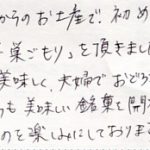 からのお土産で、初め
巣ごもり」を頂きまし
美味しく、夫婦でおどろ
も美味しい銘菓を開
のを楽しみにしており